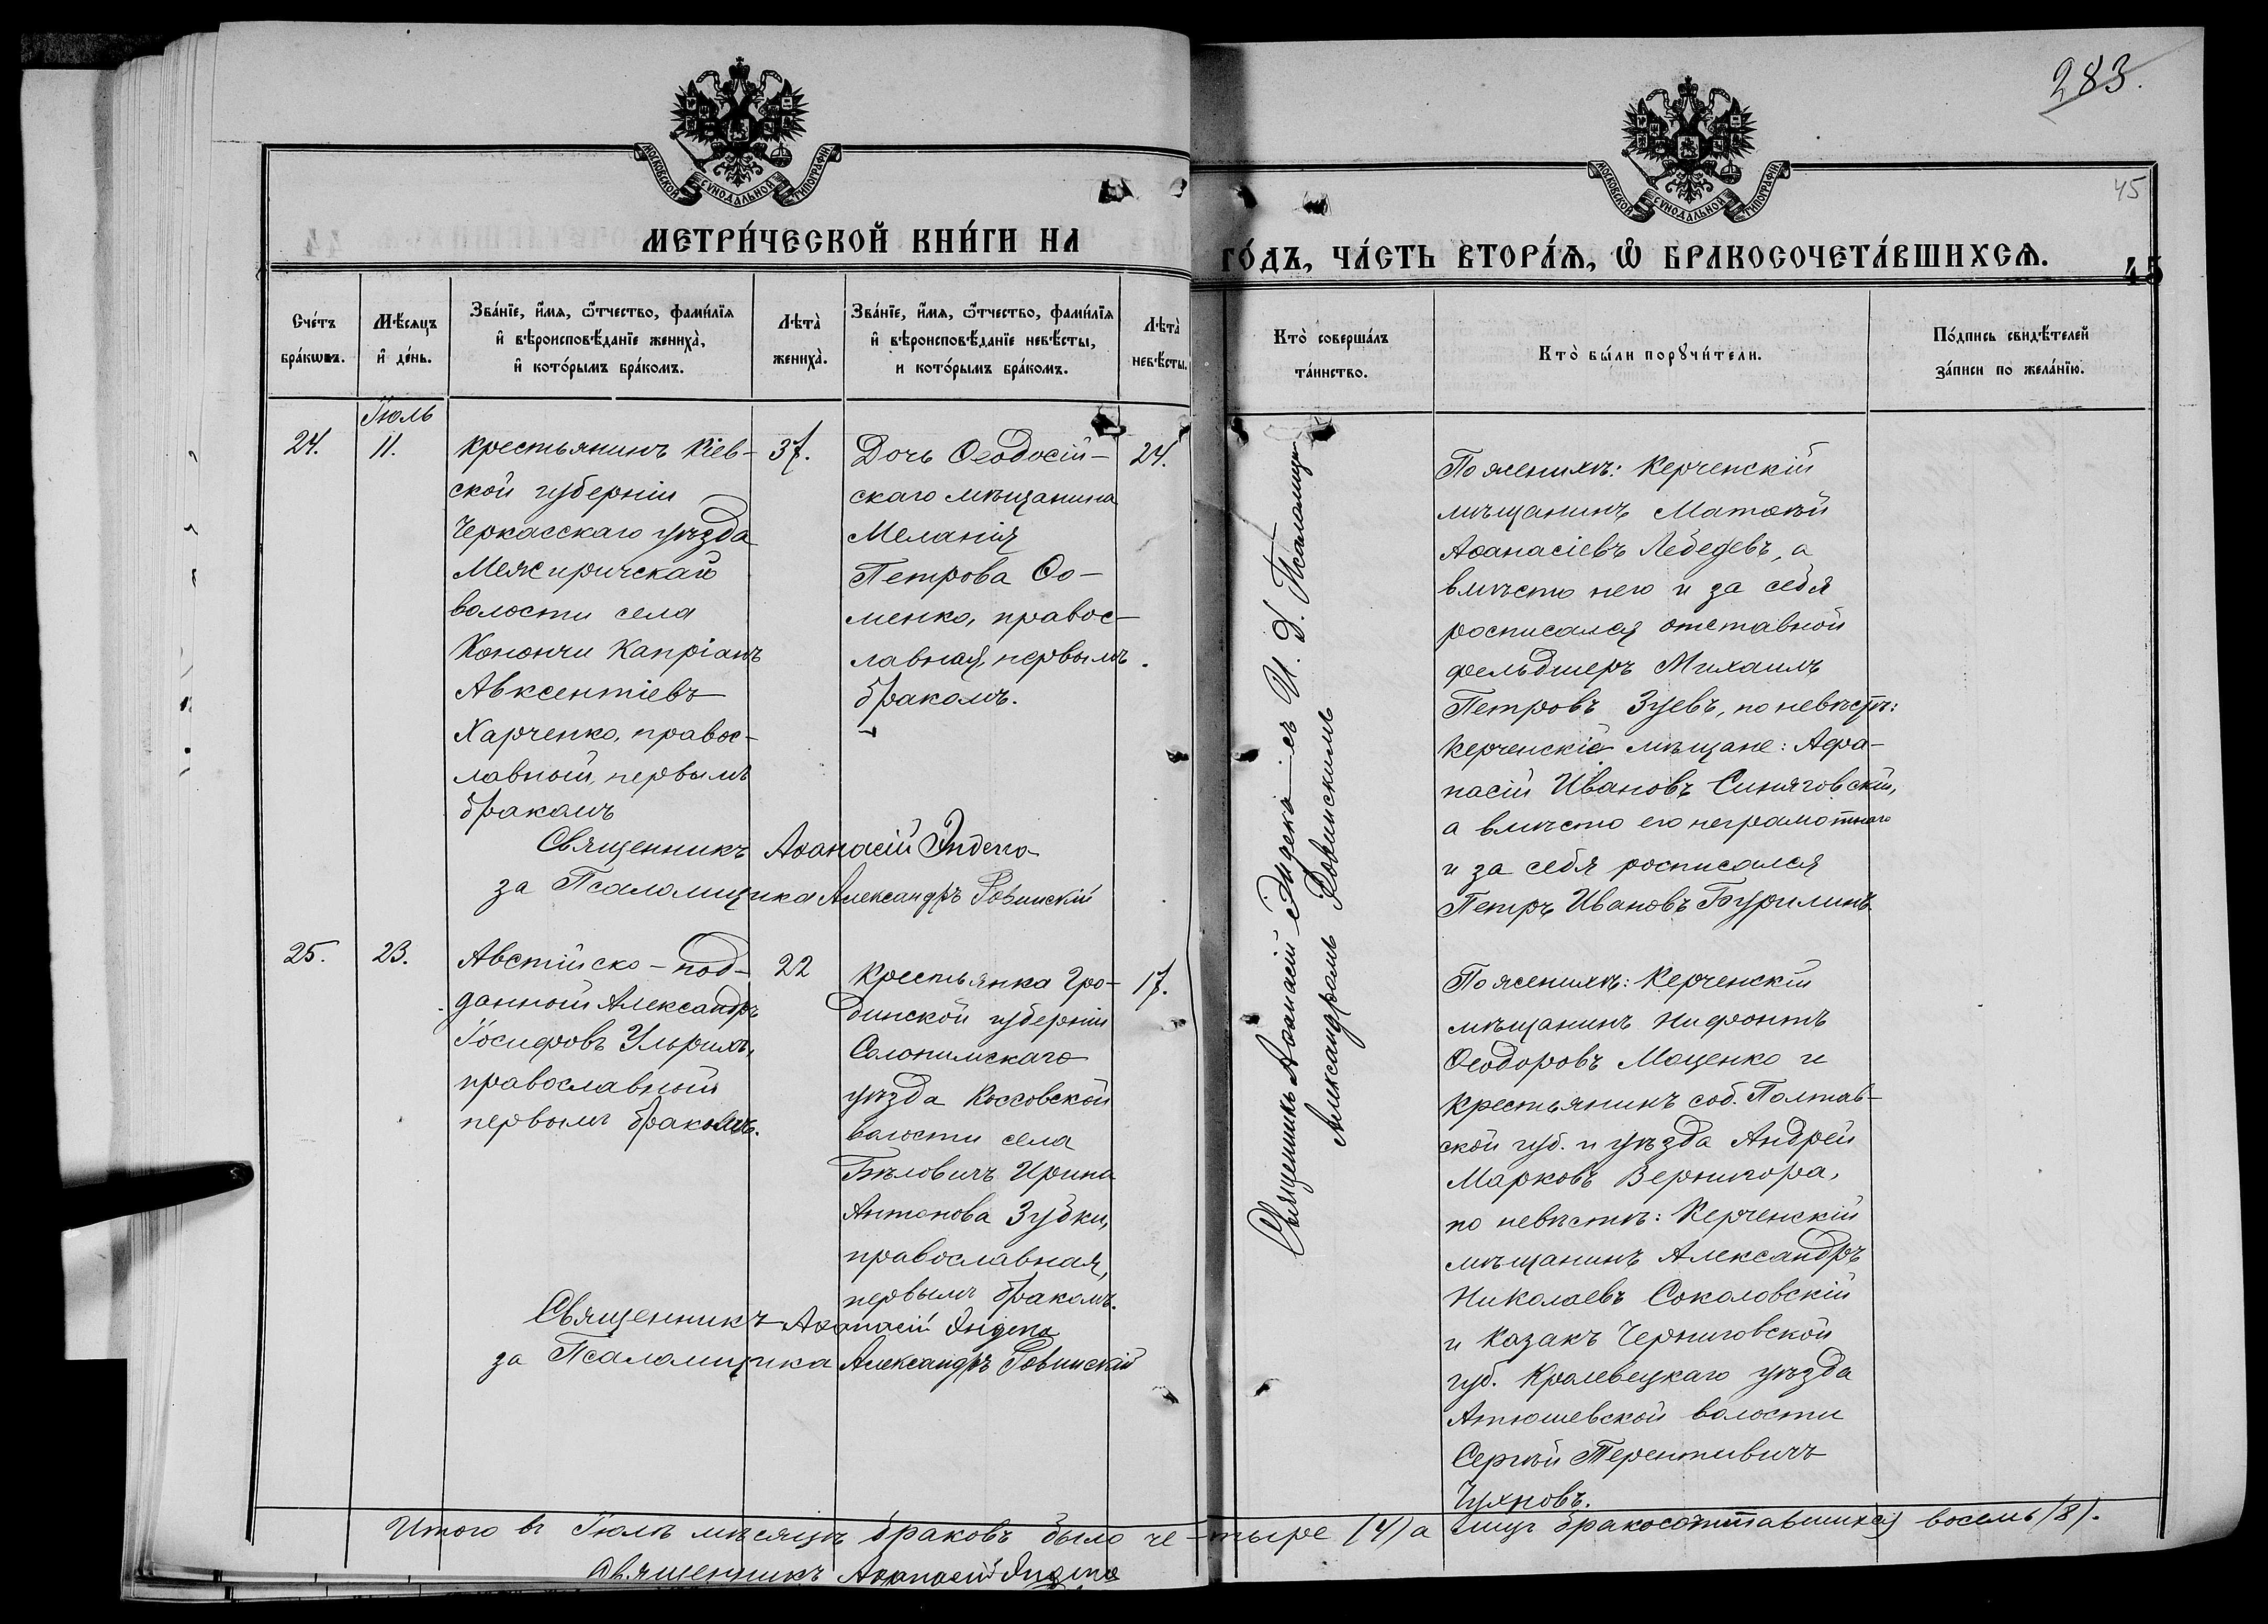 283.
МОСКОВСКОЙ СѴНОДАЛЬНОЙ ТИПОГРАФІИ
МОСКОВСКОЙ СѴНОДАЛЬНОЙ ТИПОГРАФІИ
45
МЕТРИ́ЧЕСКОЙ КНИ́ГИ НА
ГО́ДЪ, ЧА́СТЬ ВТОРА́Ѧ, Ѽ БРАКОСОЧЕТА́ВШИХСѦ.
45
Сче́тъ
бра́кωвъ.
Мѣ́сяцъ
и҆ де́нь.
Зва́нїе, и҆́мя, ѻ҆́тчество, фами́лїя
и҆ вѣроисповѣ́данїе жениха̀,
и҆ кото́рымъ бра́комъ.
Лѣта̀
жениха̀.
Зва́нїе, и҆́мя, ѻ҆́тчество, фами́лїя
и҆ вѣроисповѣ́данїе невѣ́сты,
и кото́рымъ бра́комъ.
Лѣта̀
невѣ́сты.
Кто̀ соверша́лъ
та́инство.
Кто̀ бы́ли порꙋчи́тели.
По́дпись свидѣ́телей
за́писи по жела́нїю.
Іюль
24.
11.
Крестьянинъ Кіев-
ской губерніи
Черкасскаго уѣзда
Межиричской
волости села
Конончи Капріанъ
Авксентіевъ
Харченко, правос-
лавный, первымъ
бракомъ
37.
Дочь Ѳеодосій-
скаго мѣщанина
Меланія
Петрова Ѳо-
менко, правос-
лавная, первымъ
бракомъ.
24.
Священникъ Аѳанасій
за Псаломщика Александръ Ровинскій
Священникъ Аѳанасій съ И. д. Псаломщика
Александромъ Ровинскимъ
По женихѣ: Керченскій
мѣщанинъ Матѳѣй
Аѳанасіевъ Лебедевъ, а
вмѣсто него и за себя
росписался отставной
фельдшеръ Михаилъ
Петровъ Зуевъ, по невѣстѣ:
Керченскіе мѣщане: Афа-
насій Ивановъ Синяговскій,
а вмѣсто его неграмотнаго
и за себя росписался
Петръ Ивановъ Бурилинъ.
25.
23.
Австійско-под-
данный Александръ
Іосифовъ Ульрихъ,
православный
первымъ бракомъ.
22
Крестьянка Гро-
динской губерніи
Солонимскаго
уѣзда Коссовской
волости села
Бѣловичъ Ирина
Антонова Зубки,
православная,
первымъ бракомъ.
17.
Священникъ Аѳанасій
за Псаломщика Александръ Ровинскій
По женихѣ: Керченскій
мѣщанинъ Нифонтъ
Ѳеодоровъ Моценко и
крестьянинъ соб. Полтав-
ской губ. и уѣзда Андрей
Марковъ Вернигора,
по невѣстѣ: Керченскій
мѣщанинъ Александръ
Николаевъ Соколовскій
и Казакъ Черниговской
губ. Кролевецкаго уѣзда
Атюшевской волости
Сергѣй Терентиевичъ
Чухновъ.
Итого въ Іюлѣ мѣсяцѣ браковъ было че-тыре (4) а лицъ бракосочетавшихся восемь (8).
Священникъ Аѳанасій